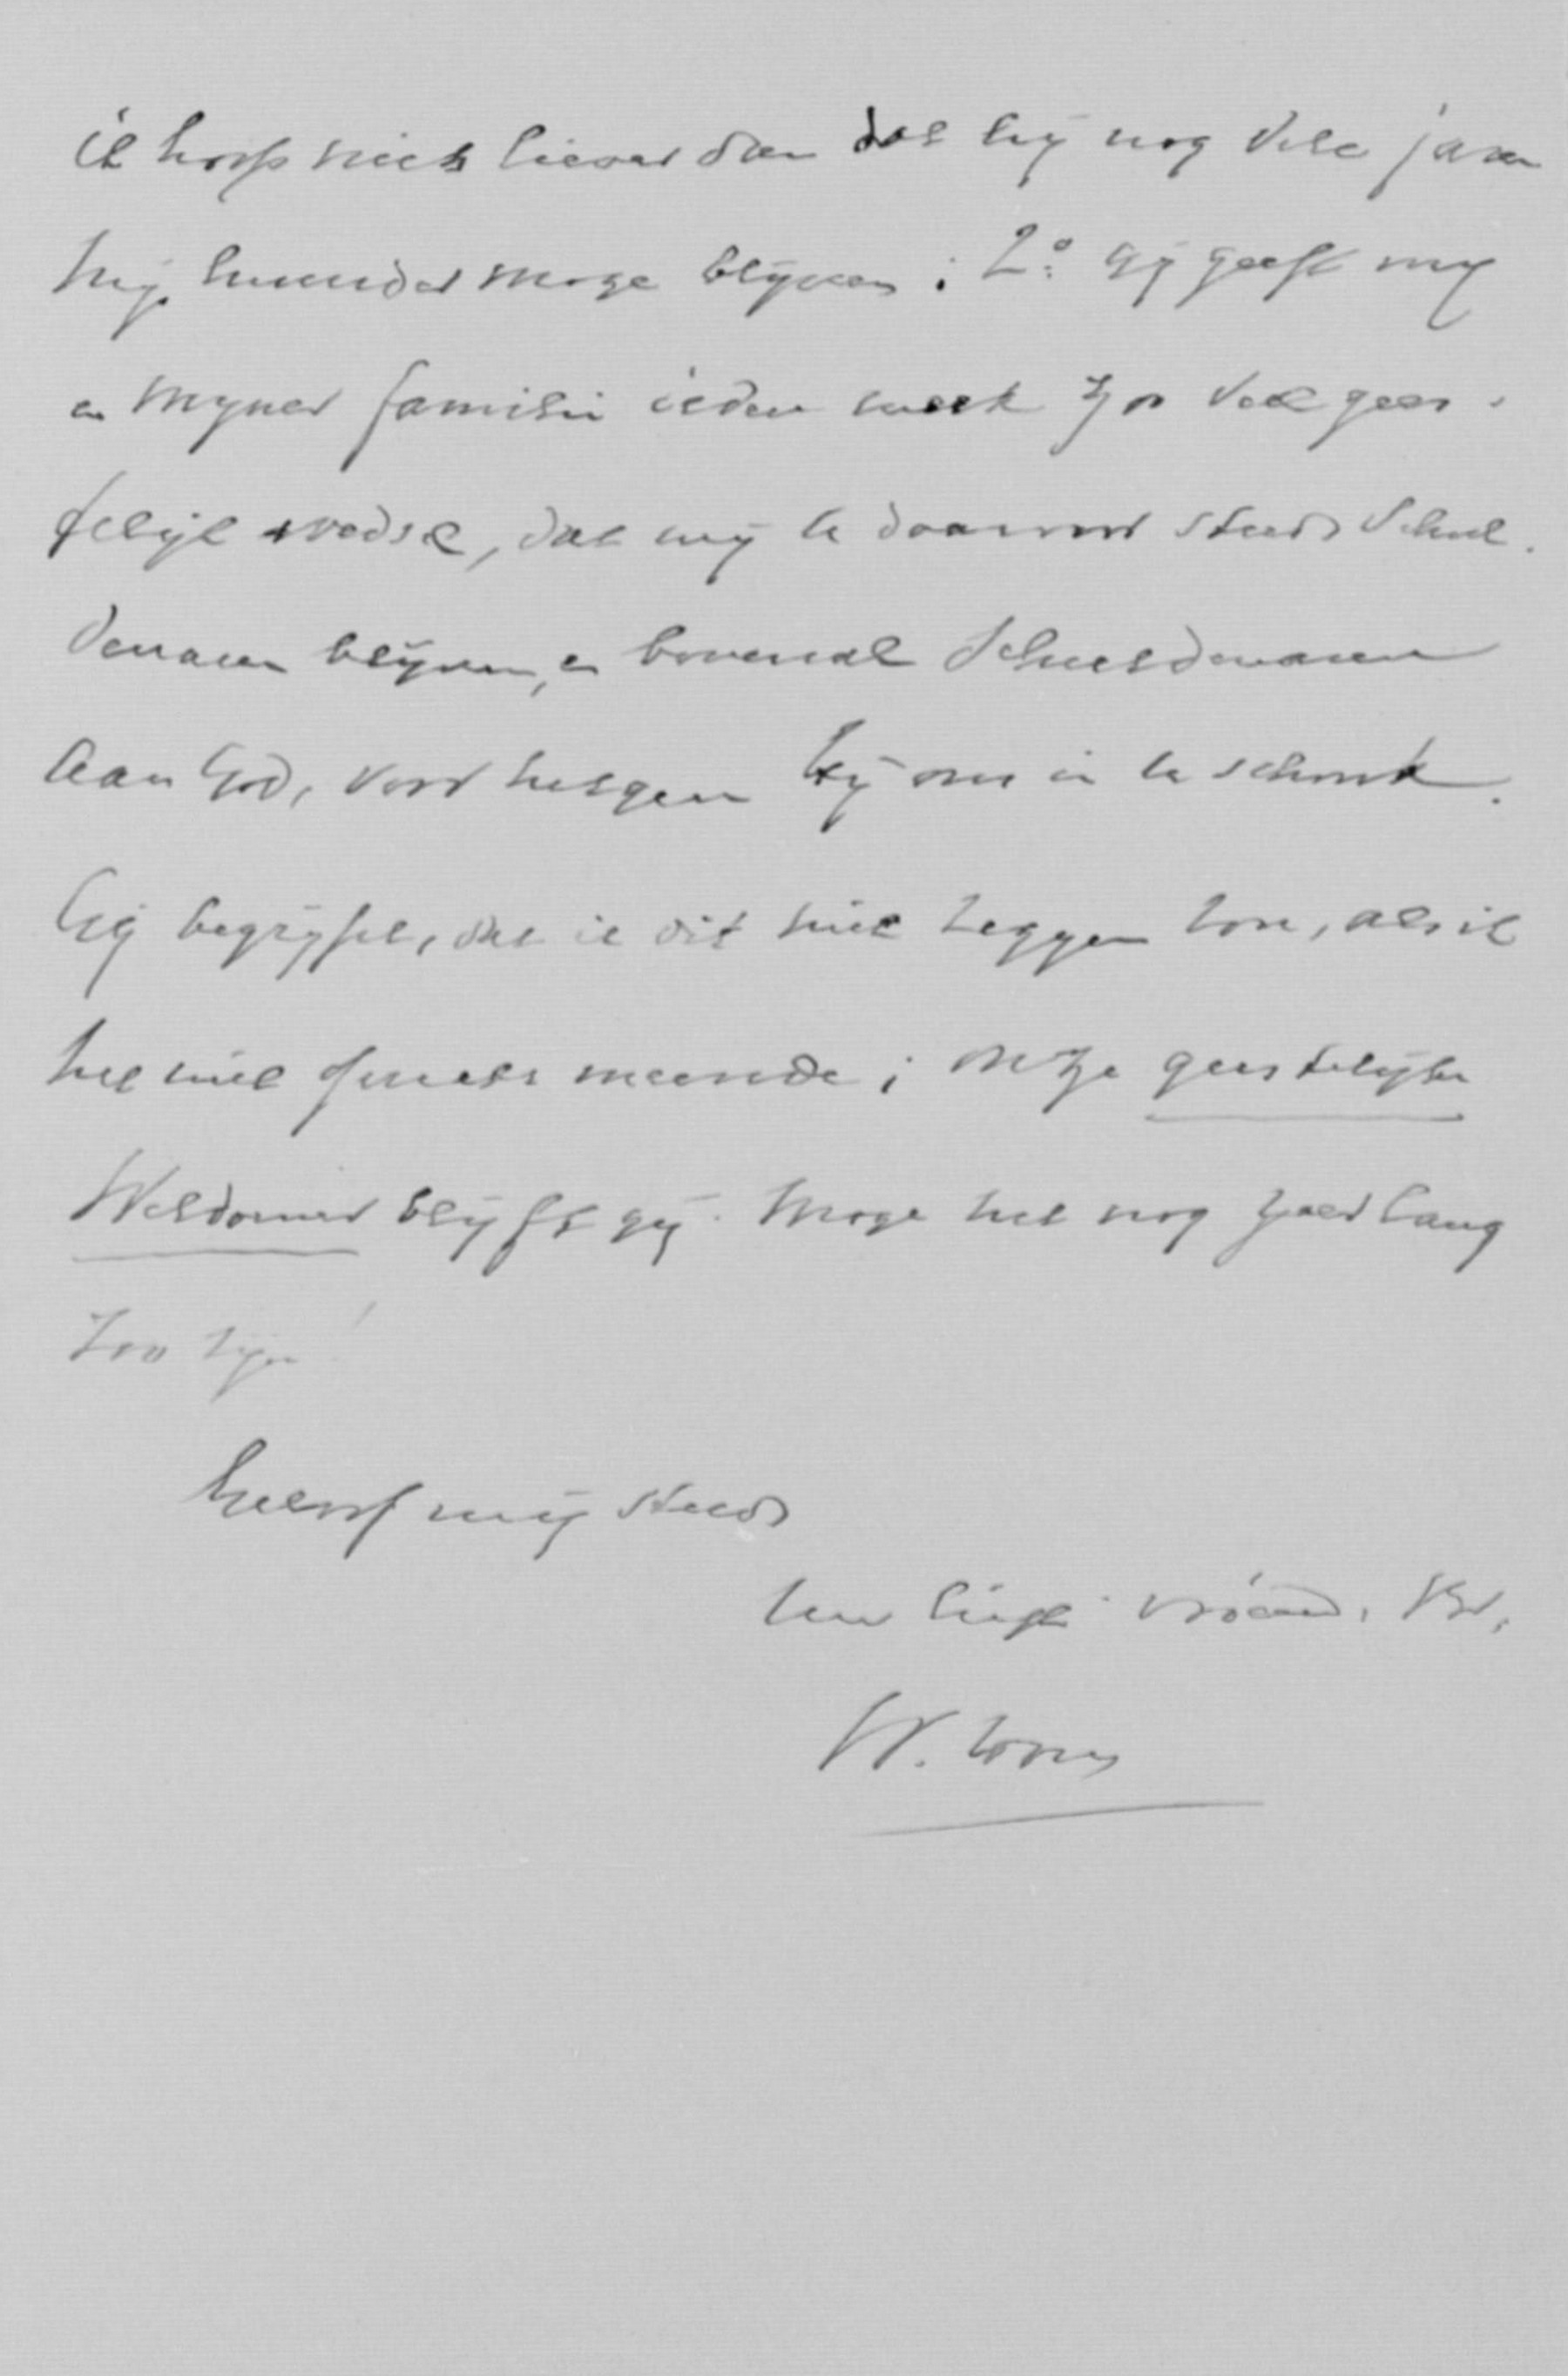 ik hoop niets liever dan dat hij nog vele jaren
mijn huurder moge blijven; 2º. gij geeft mij
en mijner familie iedere week zoo veel gees-
telijk voedsel, dat wij U daarvoor steeds schul-
denaren blijven, en bovenal schuldenaren
aan God, voor hetgeen Hij ons in U schonk.
Gij begrijpt, dat ik dit niet zeggen zou, als ik
het niet ernstig meende; onze geestelijke
Weldoener blijft gij. Moge het nog zeer lang
zoo zijn!
Geloof mij steeds
Uw liefh. vriend. Br,
W.